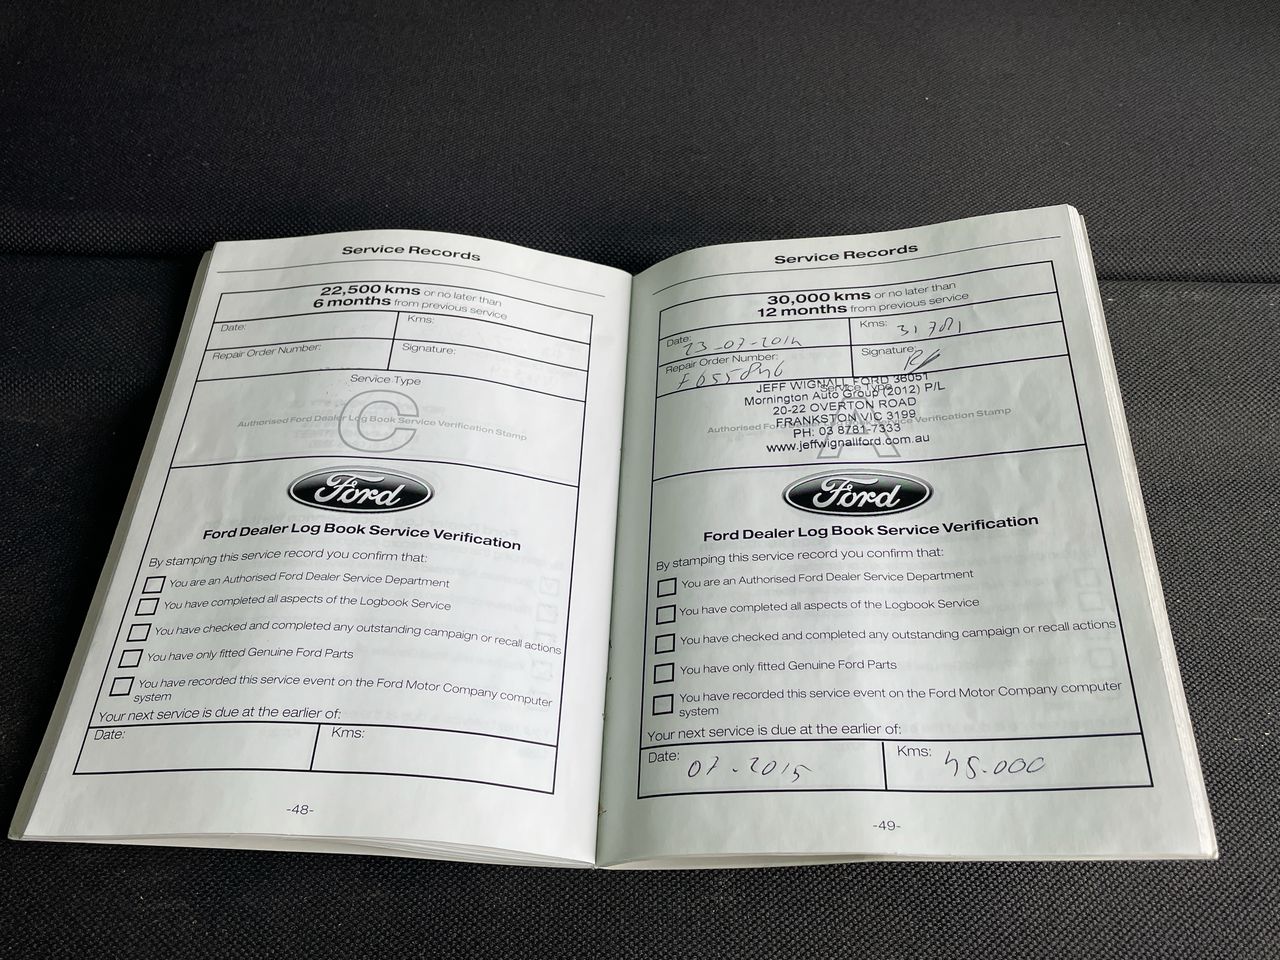 Service Records
22,500 kms or no later than
6 months from previous service
Date:
Kms:
Repair Order Number:
Signature:
Service Type
C
Authorised Ford Dealer Log Book Service Verification Stamp
Ford
Ford Dealer Log Book Service Verification
By stamping this service record you confirm that:
You are an Authorised Ford Dealer Service Department
You have completed all aspects of the Logbook Service
You have checked and completed any outstanding campaign or recall actions
You have only fitted Genuine Ford Parts
You have recorded this service event on the Ford Motor Company computer
system
Your next service is due at the earlier of:
Date:
Kms:
-48-
Service Records
30,000 kms or no later than
12 months from previous service
Date: 23-07-2014
Kms: 31781
Repair Order Number:
Signature:
Service Type
JEFF WIGNALL FORD 36051
Mornington Auto Group (2012) P/L
20-22 OVERTON ROAD
FRANKSTON VIC 3199
PH: 03 8781-7333
www.jeffwignallford.com.au
A
Ford
Ford Dealer Log Book Service Verification
By stamping this service record you confirm that:
You are an Authorised Ford Dealer Service Department
You have completed all aspects of the Logbook Service
You have checked and completed any outstanding campaign or recall actions
You have only fitted Genuine Ford Parts
You have recorded this service event on the Ford Motor Company computer
system
Your next service is due at the earlier of:
Date: 07-2015
Kms: 45.000
-49-